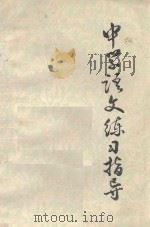 中学语文练习指导
mtoou.info mtoou.info